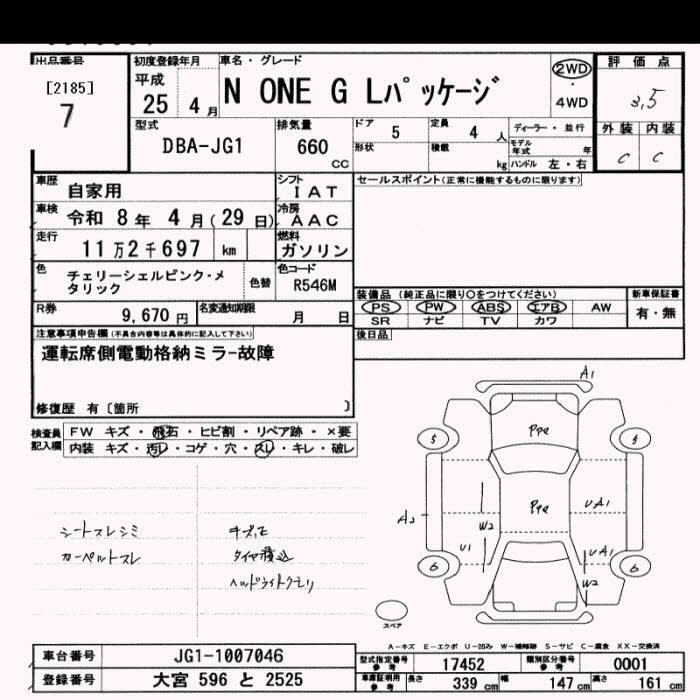 出品番号
[2185]
7
初度登録年月
平成
25 4 月
車名・グレード
N ONE G Lパッケージ
2WD
・
4WD
評価点
3,5
外装 内装
C C
型式
DBA-JG1
排気量
660
CC
ドア 5
定員 4 人
形状
積載 kg
ディーラー・並行
モデル年式 年
ハンドル 左・右
車歴
自家用
シフト
IAT
車検
令和 8 年 4 月( 29 日)
冷房
AAC
走行
11万2千697 km
燃料
ガソリン
色
チェリーシェルピンク・メ
タリック
色替
色コード
R546M
R券
9,670 円
名変通知期限
月 日
セールスポイント(正常に機能するものに限ります)
装備品 (純正品に限り○をつけてください)
PS PW ABS エアB AW
SR ナビ TV カワ
新車保証書
有・無
後日品
注意事項申告欄(不具合内容等は具体的に記入して下さい)
運転席側電動格納ミラ-故障
修復歴 有〔箇所 〕
検査員
記入欄
FW キズ・飛石・ヒビ割・リペア跡・×要
内装 キズ・汚レ・コゲ・穴・スレ・キレ・破レ
シートスレシミ
カーペットスレ
キズ、モ
タイヤ積込
ヘッドライトクモリ
A1
5 5
PPe
PPe
A2
W2
U1
UA1
UA1
W2
6 6
スペア
A-キズ E-エクボ U-凹み W-補修跡 S-サビ C-腐食 XX-交換済
車台番号
JG1-1007046
登録番号
大宮 596 と 2525
型式指定番号
参考
17452
類別区分番号
参考
0001
車庫証明用
参考
長さ 339 cm
幅 147 cm
高さ 161 cm